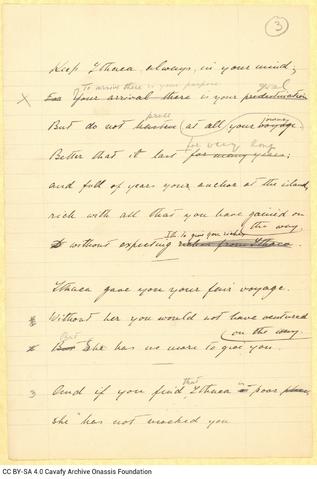 3
Keep Ithaca always in your mind;
To arrive there is your purpose
x Your arrival there is your predestination goal
But do not hasten press at all your voyage.
for very long
Better that it last for many years;
and full of years your anchor at the island,
rich with all that you have gained on
the way,
without expecting riches from Ithaca.
Ith. to give you riches
Ithaca gave you your fair voyage.
Without her you would not have ventured
on the way.
But
But She has no more to give you.
3 And if you find that Ithaca is poor place,
she has not mocked you
CC BY-SA 4.0 Cavafy Archive Onassis Foundation